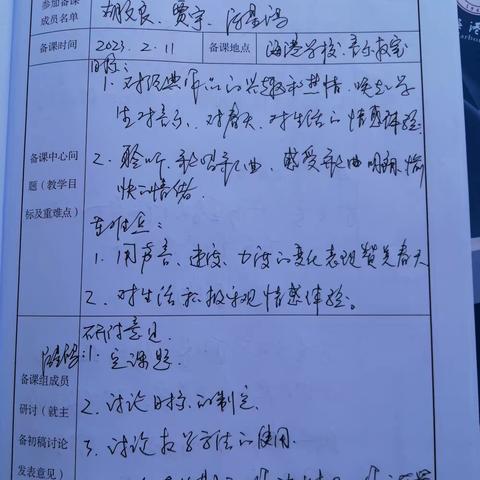 参加备课
成员名单
贾宇、
备课时间 2023. 2. 11 备课地点 海港学校.音乐教室
目标:
1. 对经典作品的兴趣和热情,唤起学
生对音乐、对春天、对生活的情感体验.
备课中心问
题(教学目
标及重难点)
2. 聆听、歌唱歌曲,感受歌曲明朗愉
快的情绪.
重难点:
1. 用声音、速度、力度的变化表现赞美春天
2. 对生活积极乐观情感体验。
研讨意见
1. 定课题.
备课组成员
研讨(就主
备初稿讨论
发表意见)
2. 讨论目标的制定.
3. 讨论教学方法的使用.